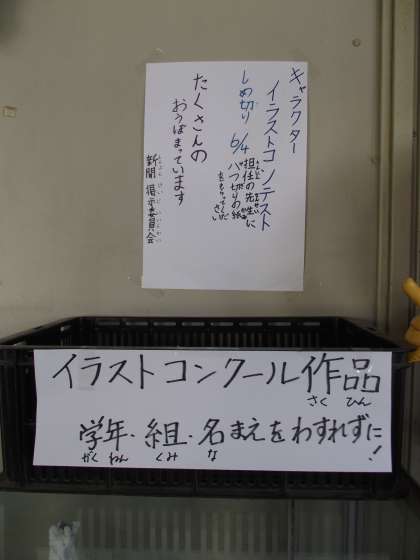 キャラクター
イラストコンテスト
しめ切り 6/4
担任の先生に
八つ切りの紙
をもらってくだ
さい
たくさんの
おうぼまっています
新聞 掲示委員会
イラストコンクール作品
さく ひん
学年・組・名まえをわすれずに!
がく ねん くみ な